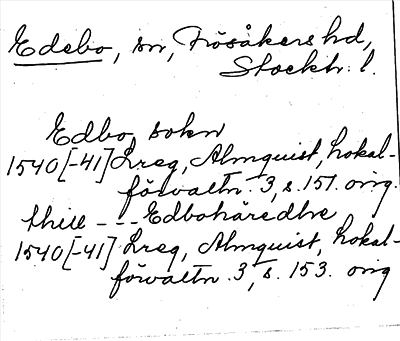 Edebo, sn, Frösåkers hd,
Stockh. l.
Edbo sokn
1540[-41] Lreg, Almquist, Lokal-
förvaltn. 3, s. 151. orig.
thill --- Edbohäredhe
1540[-41] Lreg, Almquist, Lokal-
förvaltn. 3, s. 153. orig